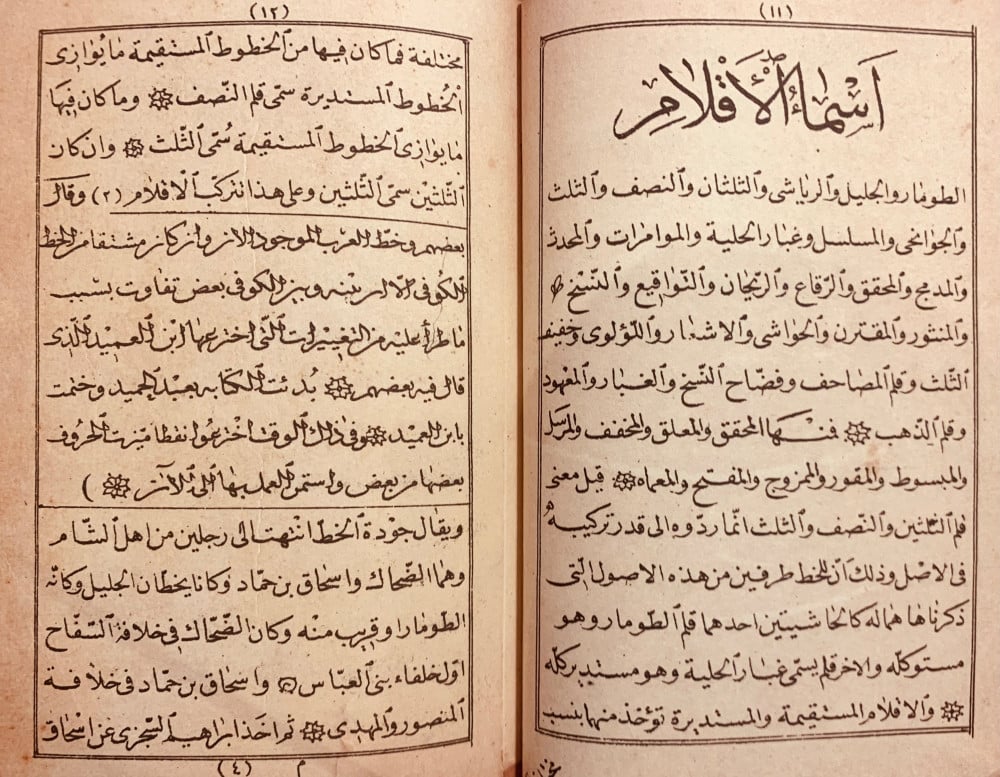 (١١)
اَسْمَاءُ الْأَقْلَامِ
الطومار والجليل والرياشى والثلثان والنصف والثلث
والجوانحى والمسلسل وغبار الحلية والموامرات والمحدث
والمدمج والمحقق والرقاع والريحان والتواقيع والنسخ
والمنثور والمقترن والحواشى والاشعار واللؤلوى وخفيف
الثلث وقلم المصاحف وفضاح النسخ والغبار والمعهود
وقلم الذهب فمنها المحقق والمعلق والمخفف والمرسل
والمبسوط والمقور والممزوج والمفتح والمعماه قيل معنى
قلم الثلثين والنصف والثلث انما ردوه الى قدر تركيبه
فى الاصل وذلك ان للخط طرفين من هذه الاصول التى
ذكرناها هما له كالحاشيتين احدهما قلم الطومار وهو
مستو كله والاخر قلم يسمى غبار الحلية وهو مستدير كله
والاقلام المستقيمة والمستديرة تؤخذ منهما بنسب
(١٢)
مختلفة فما كان فيها من الخطوط المستقيمة ما يوازى
الخطوط المستديرة سمى قلم النصف وما كان فيها
ما يوازى الخطوط المستقيمة سُمى الثلث وان كان
الثلثين سمى الثلثين وعلى هذا تتركب الاقلام (٢) وقال
بعضهم وخط العرب الموجود الان وان كان مشتقا من الخط
الكوفى الا ان بينه وبين الكوفى بعض تفاوت بسبب
ما طرأ عليه من التغييرات التى اخترعها ابن العميد الذى
قال فيه بعضهم بُدئت الكتابه بعبد الحميد وختمت
بابن العميد وفى ذلك الوقت اخترعوا نقطا ميزت الحروف
بعضها من بعض واستمر العمل بها الى الآن )
ويقال جودة الخط انتهت الى رجلين من اهل الشام
وهما الضحاك واسحاق بن حماد وكانا يخطان الجليل وكانه
الطومار او قريب منه وكان الضحاك فى خلافة السفاح
اول خلفاء بنى العباس واسحاق بن حماد فى خلافة
المنصور والمهدى ثم اخذ ابراهيم السجزى عن اسحاق
م (٤)